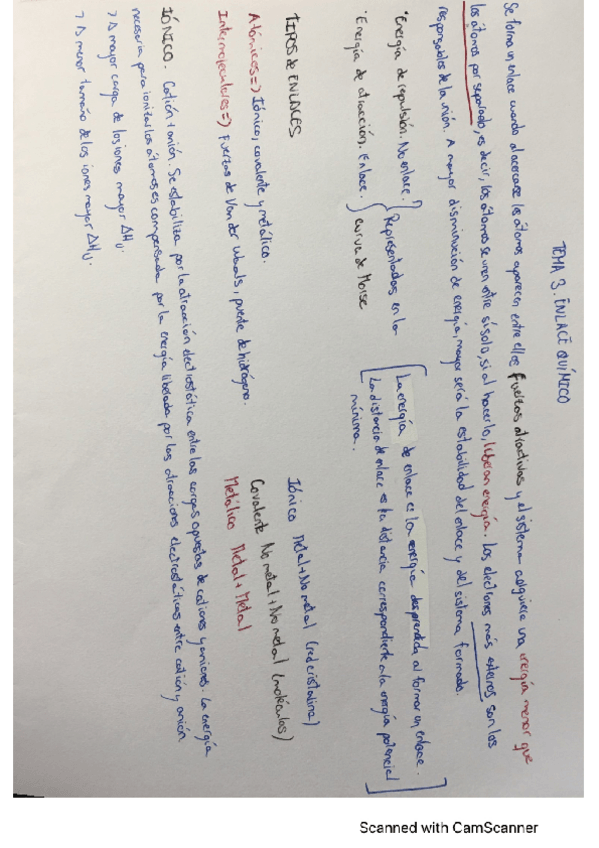 TEMA 3. ENLACE QUÍMICO
Se forma un enlace cuando al acercarse los átomos aparecen entre ellos fuerzas atractivas y el sistema adquiere una energía menor que
los átomos por separado, es decir, los átomos se unen entre sí solo, si al hacerlo, liberan energía. Los electrones más externos son los
responsables de la unión. A mayor disminución de energía, mayor será la estabilidad del enlace y del sistema formado.
· Energía de repulsión. No enlace } Representadas en la
· Energía de atracción. Enlace. } curva de Morse
[La energía de enlace es la energía desprendida al formar un enlace.
La distancia de enlace es la distancia correspondiente a la energía potencial
mínima.]
TIPOS de ENLACES
Atómicos => Iónico, covalente y metálico.
Intermoleculares => Fuerzas de Van der Waals, puente de hidrógeno.
Iónico Metal + No metal (red cristalina)
Covalente No metal + No metal (moléculas)
Metálico Metal + Metal
IÓNICO. Catión + anión. Se estabiliza por la atracción electrostática entre las cargas opuestas de cationes y aniones. La energía
necesaria para ionizar los átomos es compensada por la energía liberada por las atracciones electrostáticas entre catión y anión.
> A mayor carga de los iones mayor ΔHu.
> A menor tamaño de los iones mayor ΔHu.
Scanned with CamScanner